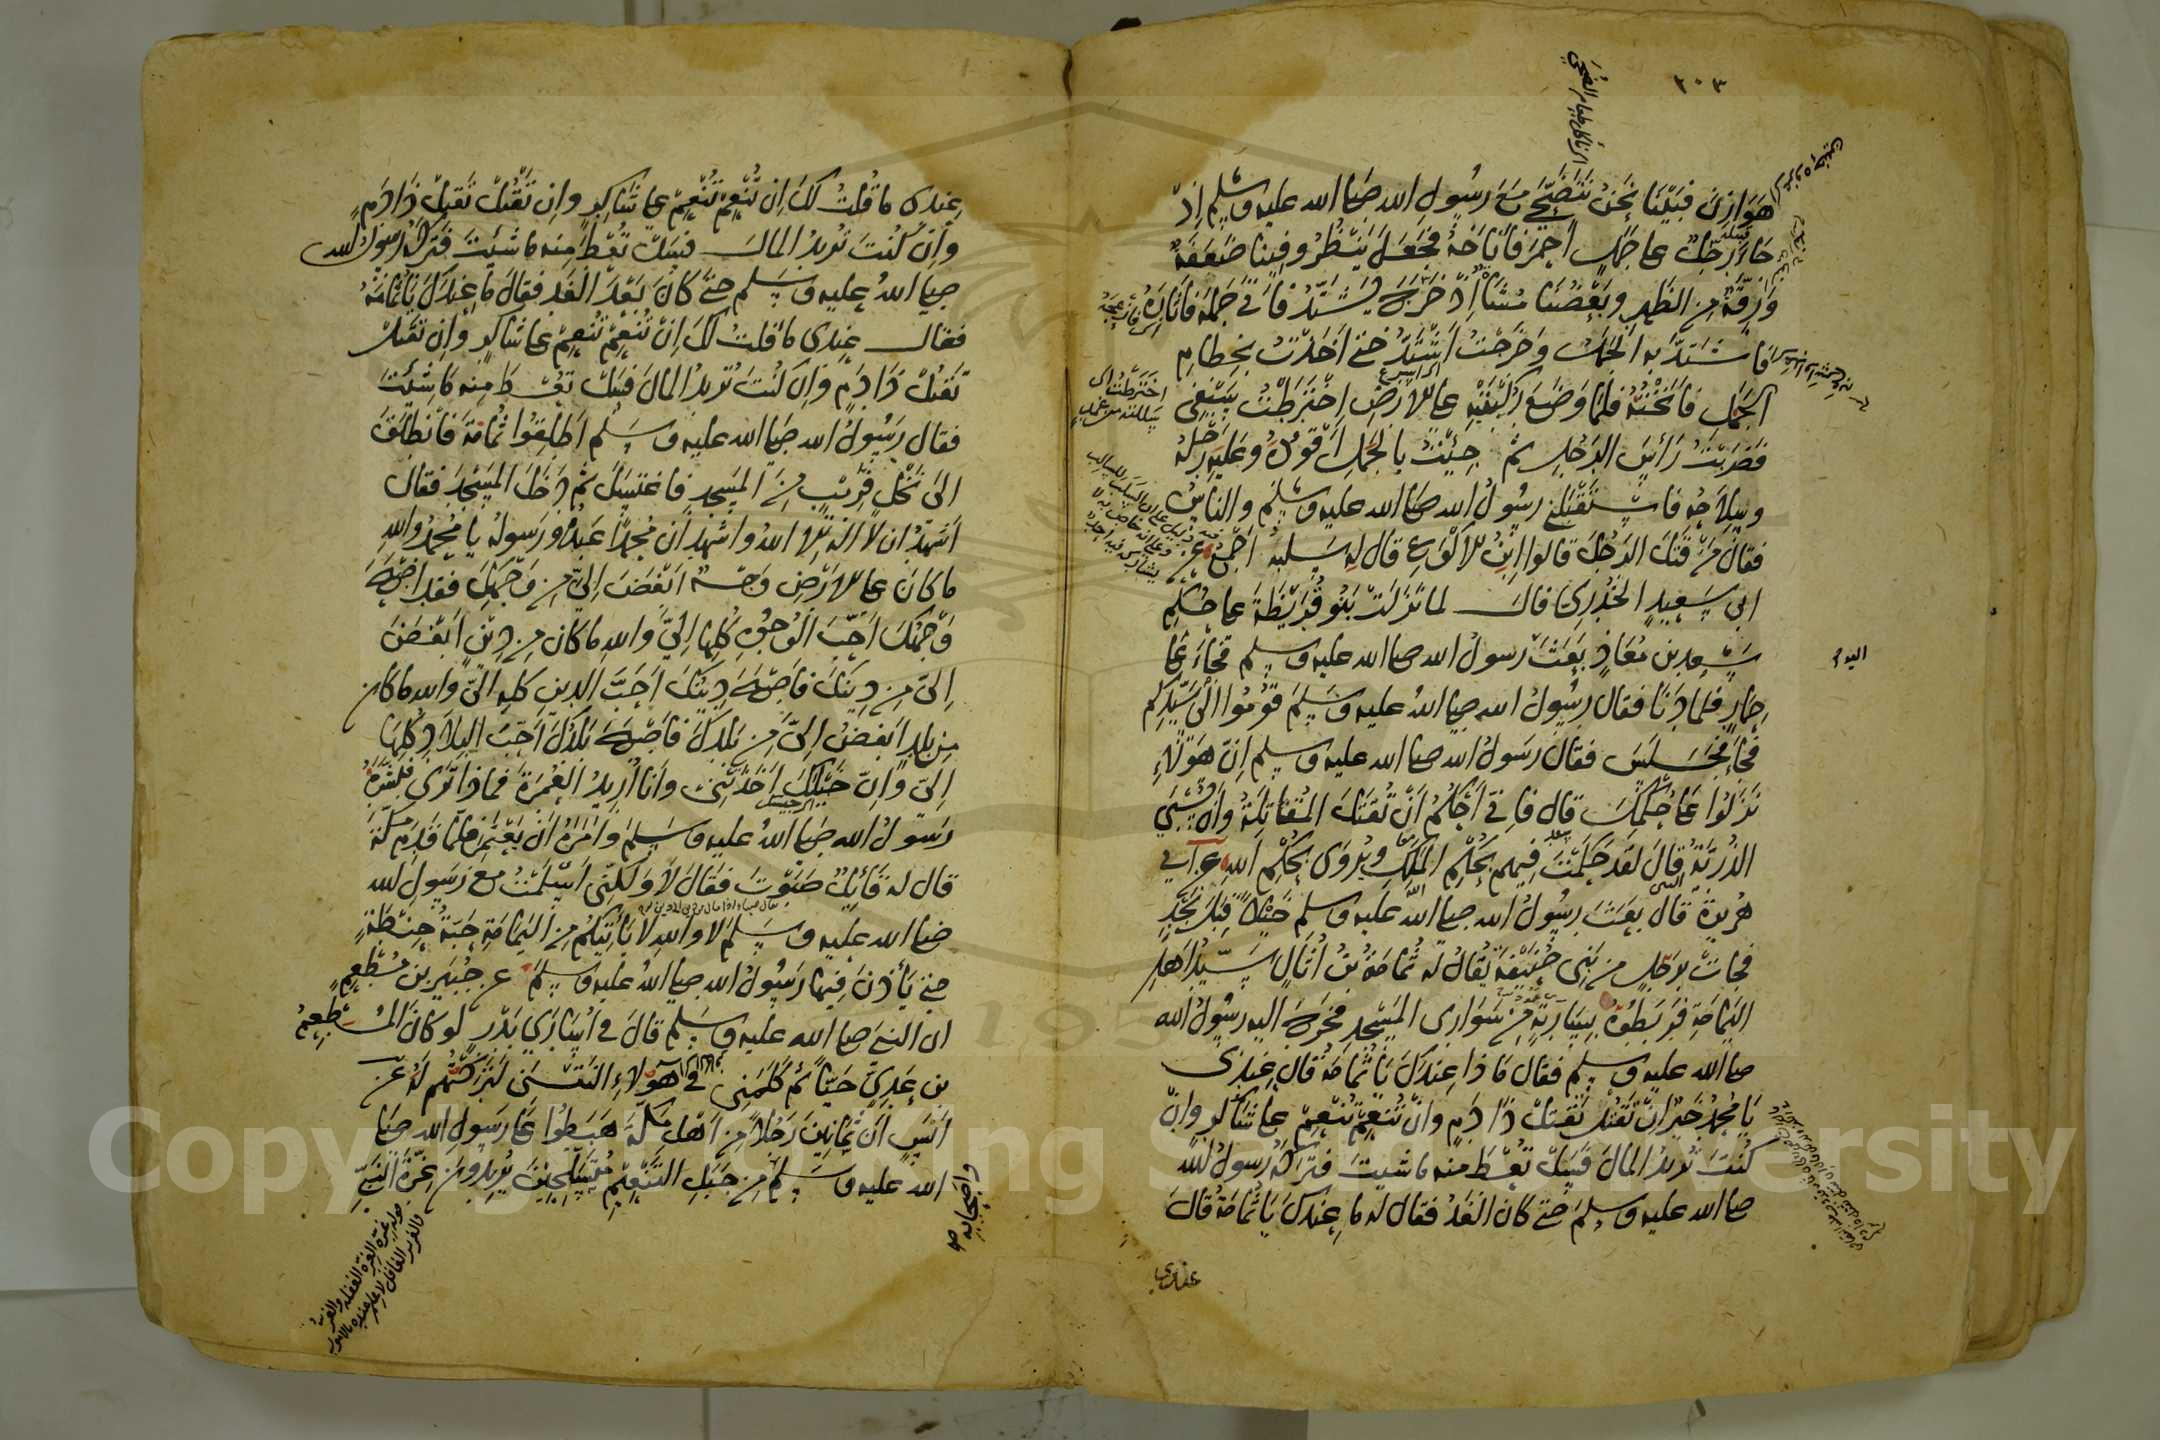 ٢٠٣
هَوَازِنَ فبَيْنَا نَحْنُ نَتَضَحَّى مَعَ رَسُولِ الله صلى الله عليه وسلم اِذْ
جَاءَ رَجُلٌ على جَمَلٍ اَحْمَرَ فَاَنَاخَهُ فجَعَلَ يَنْظُرُ وفِينَا ضَعْفَةٌ
وَرِقَّةٌ مِنَ الظَّهرِ وبَعْضُنَا مُشَاةٌ اِذْ خَرَجَ يَشْتَدُّ فَاَتى جَمَلَهُ فَاَثَارَهُ
فَاشْتَدَّ به الجَمَلُ وخَرَجْتُ اَشْتَدُّ حتى اَخَذْتُ بخِطامِ
الجَمَلِ فَاَنَخْتُهُ فلمّا وَضَعَ رُكْبَتَيْهِ على الاَرْضِ اِخْتَرَطْتُ سَيْفِى
فَضَرَبْتُ رَأسَ الرَجُلِ ثم جِئْتُ بالجَمَلِ اَقُودُهُ وعَلَيهِ رَحْلُهُ
وسِلاَحُه فاسْتَقْبَلَنِى رسُولُ الله صلى الله عليه وسلم والناسُ
فقالَ مَنْ قَتَلَ الرَجُلَ قالوا اِبْنُ الاَكْوَعِ قال لهُ سَلَبُه اَجْمَعُ عن
ابى سَعِيدٍ الخُدْرِىّ قال لما نَزَلَتْ بَنُو قُرَيْظَةَ على حُكْمِ
سَعْدِ بنِ مُعَاذٍ بَعَثَ رسولُ الله صلى الله عليه وسلم فجَاءَ على
حِمَارٍ فلما دَنَا فقال رسُولُ الله صلى اللهُ عليه وسلم قُومُوا اِلَى سَيِّدِكم
فجَاءَ فجَلَسَ فقال رسَولُ الله صلى الله عليه وسلم اِنّ هَؤلاءِ
نَزَلُوا على حُكْمِكَ قال فاِنّى اَحْكُمُ اَنْ تُقْتَلَ المُقَاتِلَةُ واَنْ تُسْبَى
الذُرِيَّةُ قالَ لقَدْ حَكَمْتَ فِيهم بحُكْمِ المَلِكِ ويُرْوَى بحُكْمِ اللهِ عن ابى
هُرَيرةَ قال بَعَثَ رسُولُ الله صلى الله عليه وسلم خَيْلاً قِبَلَ نَجْدٍ
فجاءَتْ برَجُلٍ من بَنِى حَنِيْفَةَ يُقالُ لَه ثُمَامَةُ بْنُ اُثَالٍ سَيِّدُ اَهْلِ
اليَمَامَةِ فرَبَطُوْهُ بِسَارِيَةٍ مِنْ سَوَارِى المَسْجِدِ فخَرَجَ اليه رسُولُ الله
صلى الله عليه وسلم فقال مَاذا عِنْدَكَ يَا ثُمَامَةُ قال عِنْدِى
يَا مُحَمَّدُ خَيْرٌ اِنْ تَقْتُلْ تَقْتُلْ ذَا دَمٍ وانْ تُنْعِمْ تُنْعِمْ على شَاكِرٍ وَاِنْ
كُنْتَ تُرِيدُ المَالَ فَسَلْ تُعْطَ منه ما شِئتَ فتَرَكَهُ رَسُولُ الله
صلى الله عليه وسلم حتى كان الغَدُ فقال له ما عِنْدَكَ يَا ثُمَامَةُ قالَ
عندى
عِنْدِى ما قُلتُ لكَ اِن تُنْعِمْ تُنْعِمْ على شَاكِرٍ وانِ تَقْتُلْ تَقْتُلْ ذَا دَمٍ
واِنْ كُنْتَ تُرِيدُ المالَ فسَلْ تُعْطَ مِنه ما شِئْتَ فتَرَكَهُ رسُولُ الله
صلى اللهُ عليه وسلم حتى كانَ بَعْدَ الغَدِ فقالَ ما عِنْدَكَ يَا ثُمامَةُ
فقال عِنْدِى ما قلتُ لكَ اِنْ تُنْعِمْ تُنْعِمْ على شاكرٍ وانِ تقتلْ
تَقْتُلْ ذَا دَمٍ وَاِن كُنْتَ تُرِيدُ المالَ فسَلْ تعْطَ مِنه مَا شِئْتَ
فقال رَسُولُ الله صلى الله عليه وسلم اَطْلِقُوا ثُمامَةَ فَانْطَلَقَ
الى نَخْلٍ قَرِيْبٍ مِنَ المَسجِدِ فاغتَسَلَ ثم دَخَلَ المَسْجِدَ فقال
اَشهَدُ ان لا اله الا اللهُ واشهدُ ان مُحمّداً عَبْدُهُ ورَسُولُه يا مُحمّدُ واللهِ
ما كانَ على الاَرْضِ وَجْهٌ اَبْغَضَ اِليّ مِنْ وَجْهِكَ فقد اَصْبَحَ
وَجْهُكَ اَحَبَّ الوُجُوْهِ كُلِّها اِلَيَّ والله ما كان مِنْ دِيْنٍ اَبْغَضَ
اِلىّ مِنْ دِينِكَ فَاصْبَحَ دِيْنُكَ اَحَبَّ الدِينِ كلِه اِلىّ والله ما كان
مِن بلدٍ ابغضَ اِلىّ مِن بَلَدِكَ فاَصْبَحَ بَلَدُكَ اَحَبَّ البِلاَدِ كُلِّهَا
اِلىّ واِنّ خَيْلَكَ اَخَذَتْنِى وَانا اُرِيدُ العُمْرَةَ فماذا تَرَى فبَشَّرَهُ
رسُولُ الله صلى اللهُ عليه وسلم وامَرَهُ اَنْ يَعْتَمِرَ فلمّا قَدِمَ مكّةَ
قال له قَائِلٌ صَبَوْتَ فقال لاَ ولكِنّى اَسْلَمْتُ مع رسُولِ الله
صلى الله عليه وسلم لا واللهِ لا يَأتِيكُمْ مِنَ اليَمَامَةِ حَبَّةُ حِنْطَةٍ
حتى يَأذَنَ فِيها رَسُولُ الله صلى اللهُ عليه وسلم عن جُبَيرِ بن مُطْعِمٍ
ان النبىَ صلى الله عليه وسلم قالَ فى اُسَارَى بَدْرٍ لو كانَ المُطْعِمُ
بن عَدِىٍّ حَيّاً ثم كَلَّمَنِى فى هَؤلاءِ النَتْنَى لتَرَكْتُهم لَهُ عن
اَنَسٍ اَنّ ثمَانِينَ رَجُلاً مِنْ اَهْلِ مكّةَ هَبَطُوا على رسُولِ الله صلى
الله عليه وسلم مِنْ جَبَلِ التَنْعِيْمِ مُتَسَلِّحِيْنَ يُرِيدُونَ غِرَّةَ النبىِّ
واصحابه صح
Copyright © King Saud University